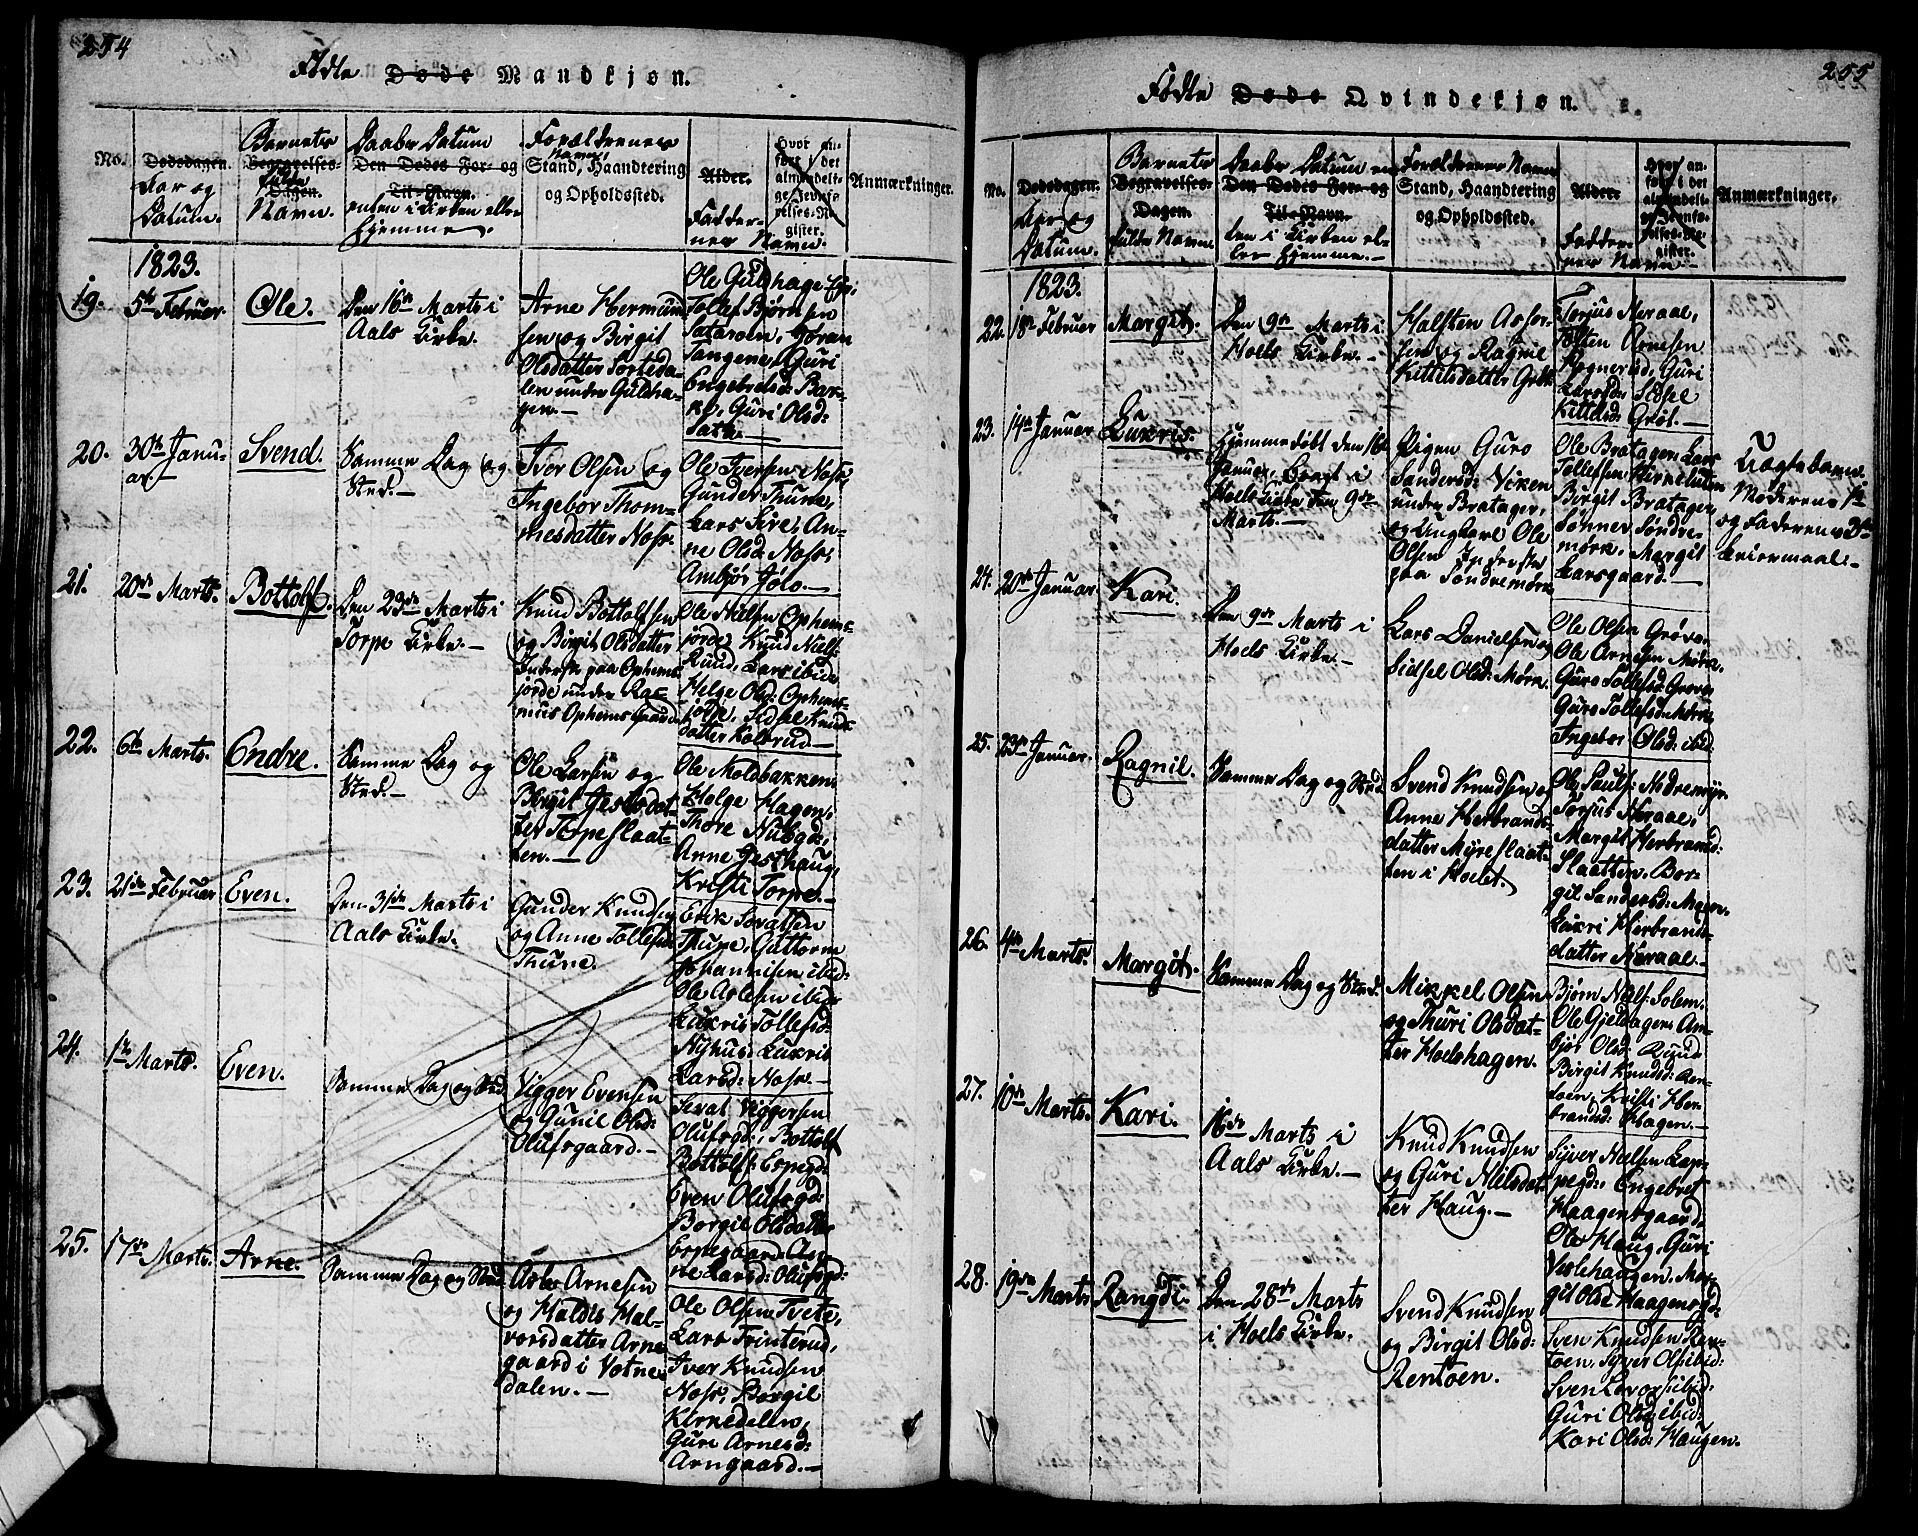 254
Fødte Døde Mandkjøn.
No.
Dødsdagen.
Aar og
Datum.
Barnets
Begravelses-
fulde
Dagen.
Navn.
Daabs Datum
Den Dødes For- og
Til-Navn.
enten i Kirken eller
hjemme.
Forældrenes
Navne,
Stand, Haandtering
og Opholdssted.
Alder.
Faddernes Navn.
Hvor anført i det almindelige Jevnførelses-Register.
Anmærkninger.
1823.
19.
5te Februar.
Ole.
Den 16de Marts i
Aals Kirke.
Arne Hermund-
sen og Birgit
Olsdatter Sorteda-
len under Guldha-
gen.—
Ole Guldhage
Tollef Bjørnsen
Sataroen, Gøran
Tangene, Guri
Engebretsd: Bak-
ke, Guri Olsd:
Sath.—
20.
30te Janu-
ar.—
Svend.
Samme Dag og
Sted.—
Iver Olsen og
Ingebor Thom-
mesdatter Noss.
Ole Iversen Noss,
Gunder Thune,
Lars Sire, An-
ne Olsd. Noss,
Ambjør Jølo.—
21.
20de Marts.
Bottolf.
Den 23de Marts i
Torpe Kirke.—
Knud Bottolfsen
og Birgit Olsdatter
Inderste paa Ophems-
jorde under Ras-
mus Ophems Gaard
Ole Nielsen Ophems-
jorde, Knud Niels:
Ruud, Lars ibid:
Helge Olsd: Ophems-
jorde, Sidsel Knuds-
datter Kolbrud—
22.
6te Marts.
Endre.
Samme Dag og
Sted.—
Ole Larsen og
Birgit Jestsdat-
ter Torpeslaat-
ten.—
Ole Moldbakken,
Holge Hagen,
Thore Nubgd:,
Anne Jesthaug,
Kristi Torpe.—
23.
21de Februar
Even.
Den 31de Marts i
Aals Kirke.
Gunder Knudsen
og Anne Tollefsd:
Thune.
Erik Sevatsen
Thune, Guttorm
Johannesen ibid:
Ole Aslesen ibid:
Lukris Tollefsd:
Nyhus, Lukris
Larsd: Noss.—
24.
1te Marts.
Even.
Samme Dag og Sted
Vigger Evensen
og Gunil Olsd:
Olufsgaard.—
Sevat Viggersen
Olufsgd:, Bottolf
Bottolfs: Espegd:
Even Olufsgd:
Borgil Olsdatter
Espegaard, An-
ne Larsd: Olufsgd:
25.
17de Marts.
Arne.
Samme Dag og Sted
Asle Arnesen
og Haldis Hal-
vorsdatter Arne-
gaard i Votne-
dalen.—
Ole Olsen Tvete,
Lars Trinterud,
Iver Knudsen
Noss, Borgil
Kirnedelen,
Guri Arnesd:
Arngaard.—
255
Fødte Døde Qvindekjøn.
No.
Dødsdagen.
Aar og
Datum.
Barnets
Begravelses-
Dagen.
fulde Navn.
Daabs Datum en-
Den Dødes For- og
Til-Navn.
ten i Kirken el-
ler hjemme.—
Forældrenes Navne
Stand, Haandtering
og Opholdssted.
Alder.
Faddernes Navn.—
Hvor anført i det almindelige Jevnførelses-Register.
Anmærkninger.
1823.
22.
18de Februar
Margit.
Den 9de Marts i
Hoels Kirke.—
Halsten Assor-
sen og Ragnil
Kittilsdatter Grøt
Torjus Neraal,
Tosten Arnesen
Rogner Guri
Larsd: Sidsel
Kittilsd: Grøt.—
23.
14de Januar
Lukris.
Hjemmedøbt den 16
Januar, bragt i
Hoels Kirke den 9de
Marts.—
Pigen Guro
Sandersd: Viken
under Bratager,
og Ungkarl Ole
Olsen Inderste
paa Søndremørk
Ole Bratagen, Lars
Tollefsen Kirneluten
Birgit Bratagen,
Sønner Søndre-
mørk, Margit
Larsgaard.—
Uægte barn.
Moderens 1te
og Faderens 3die
Leiermaal.—
24.
20de Januar.
Kari.
Den 9de Marts i
Hoels Kirke.—
Lars Danielsen og
Sidsel Olsd: Mørk.
Ole Olsen Grøvo
Ole Arnesen Mørk.
Guro Tollefsd: Grøvo
Guro Tollefsd: Mørk,
Ingebor Olsd: ibid
25.
23de Januar.
Ragnil.
Samme Dag og Sted.
Svend Knudsen og
Anne Herbrands-
datter Myreslaat-
ten i Hoelet.
Ole Pauls: Nedremyr.
Torjus Neraal,
Margit Herbrandsd:
Slaatten, Bor-
gil Sandersd: Myre.
Lukri Herbrands-
datter Neraal.—
26.
4de Marts.
Margit.
Samme Dag og Sted.
Mikkel Olsen
og Thuri Olsdat-
ter Hoelshagen.
Bjørn Niels: Solem,
Ole Gjeldagen, Am-
bjør Olsd: Ruud
Birgit Knudsd: Ren-
toen, Kristi Her-
brandsd: Hagen.—
27.
10de Marts.
Kari.
16de Marts i
Aals Kirke.—
Knud Knudsen
og Guri Nielsdat-
ter Haug.—
Syver Nielsen Lap-
pegd:, Engebret
Haagensgaard,
Ole Haug, Guri
Veslehaugen, Mar-
git Olsd Haagensgd:
28.
19de Marts
Rangdi.
Den 28de Marts
i Hoels Kirke.
Svend Knudsen
og Birgit Olsd:
Rentoen.
Sven Knudsen Ren-
toen, Syver Ols: ibid:
Sven Larss: ibid:
Guri Olsd: ibid:
Kari Olsd: Haugen.